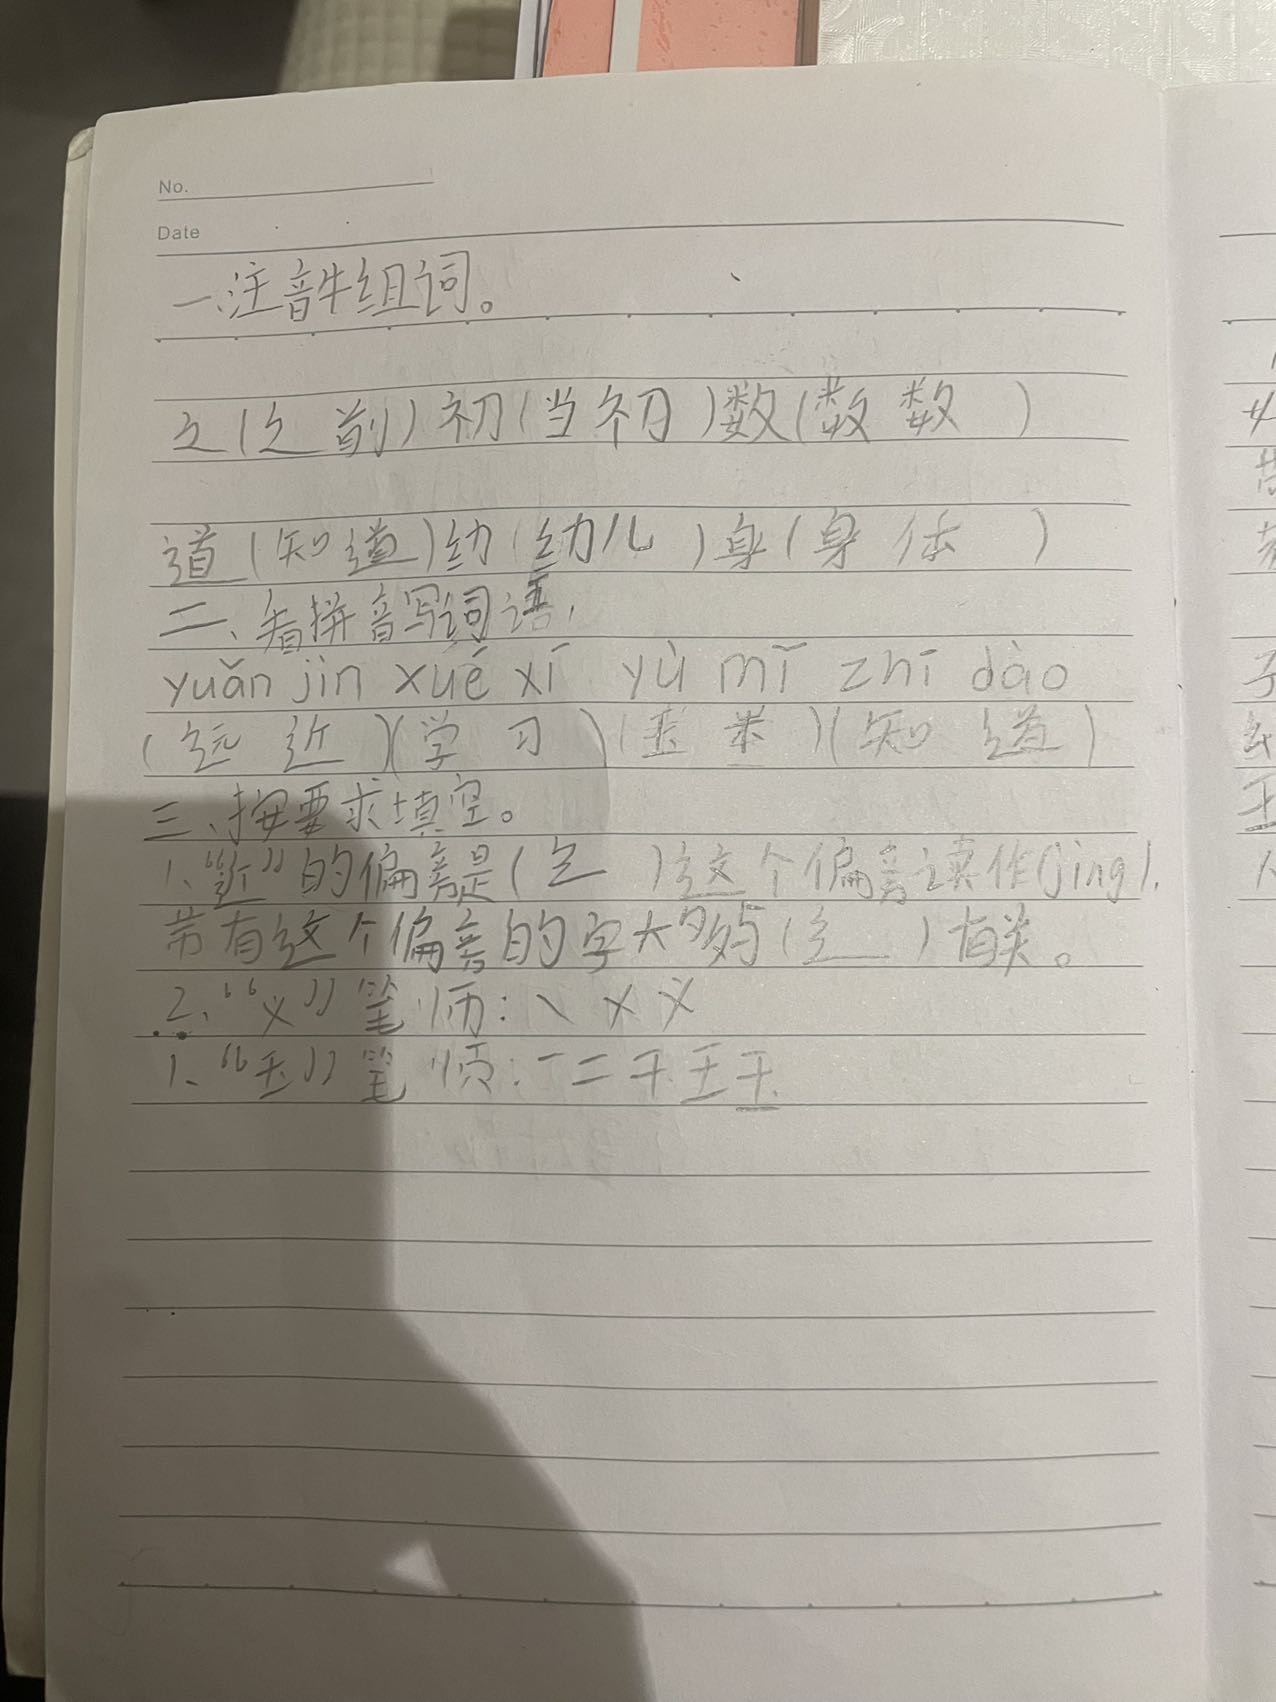 No.
Date
一、注音牛组词。
之(之前)初(当初)数(数数)
道(知道)幼(幼儿)身(身体)
二、看拼音写词语,
yuǎn jìn xué xí yù mǐ zhī dào
(远近)(学习)(玉米)(知道)
三、按要求填空。
1、“近”的偏旁是(辶)这个偏旁读作(jing).
带有这个偏旁的字大多与(辶)有关。
2、“义”笔顺:丶㐅义
1、“玉”笔顺:一二干王玉